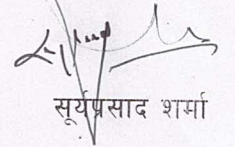 सूर्यप्रसाद शर्मा